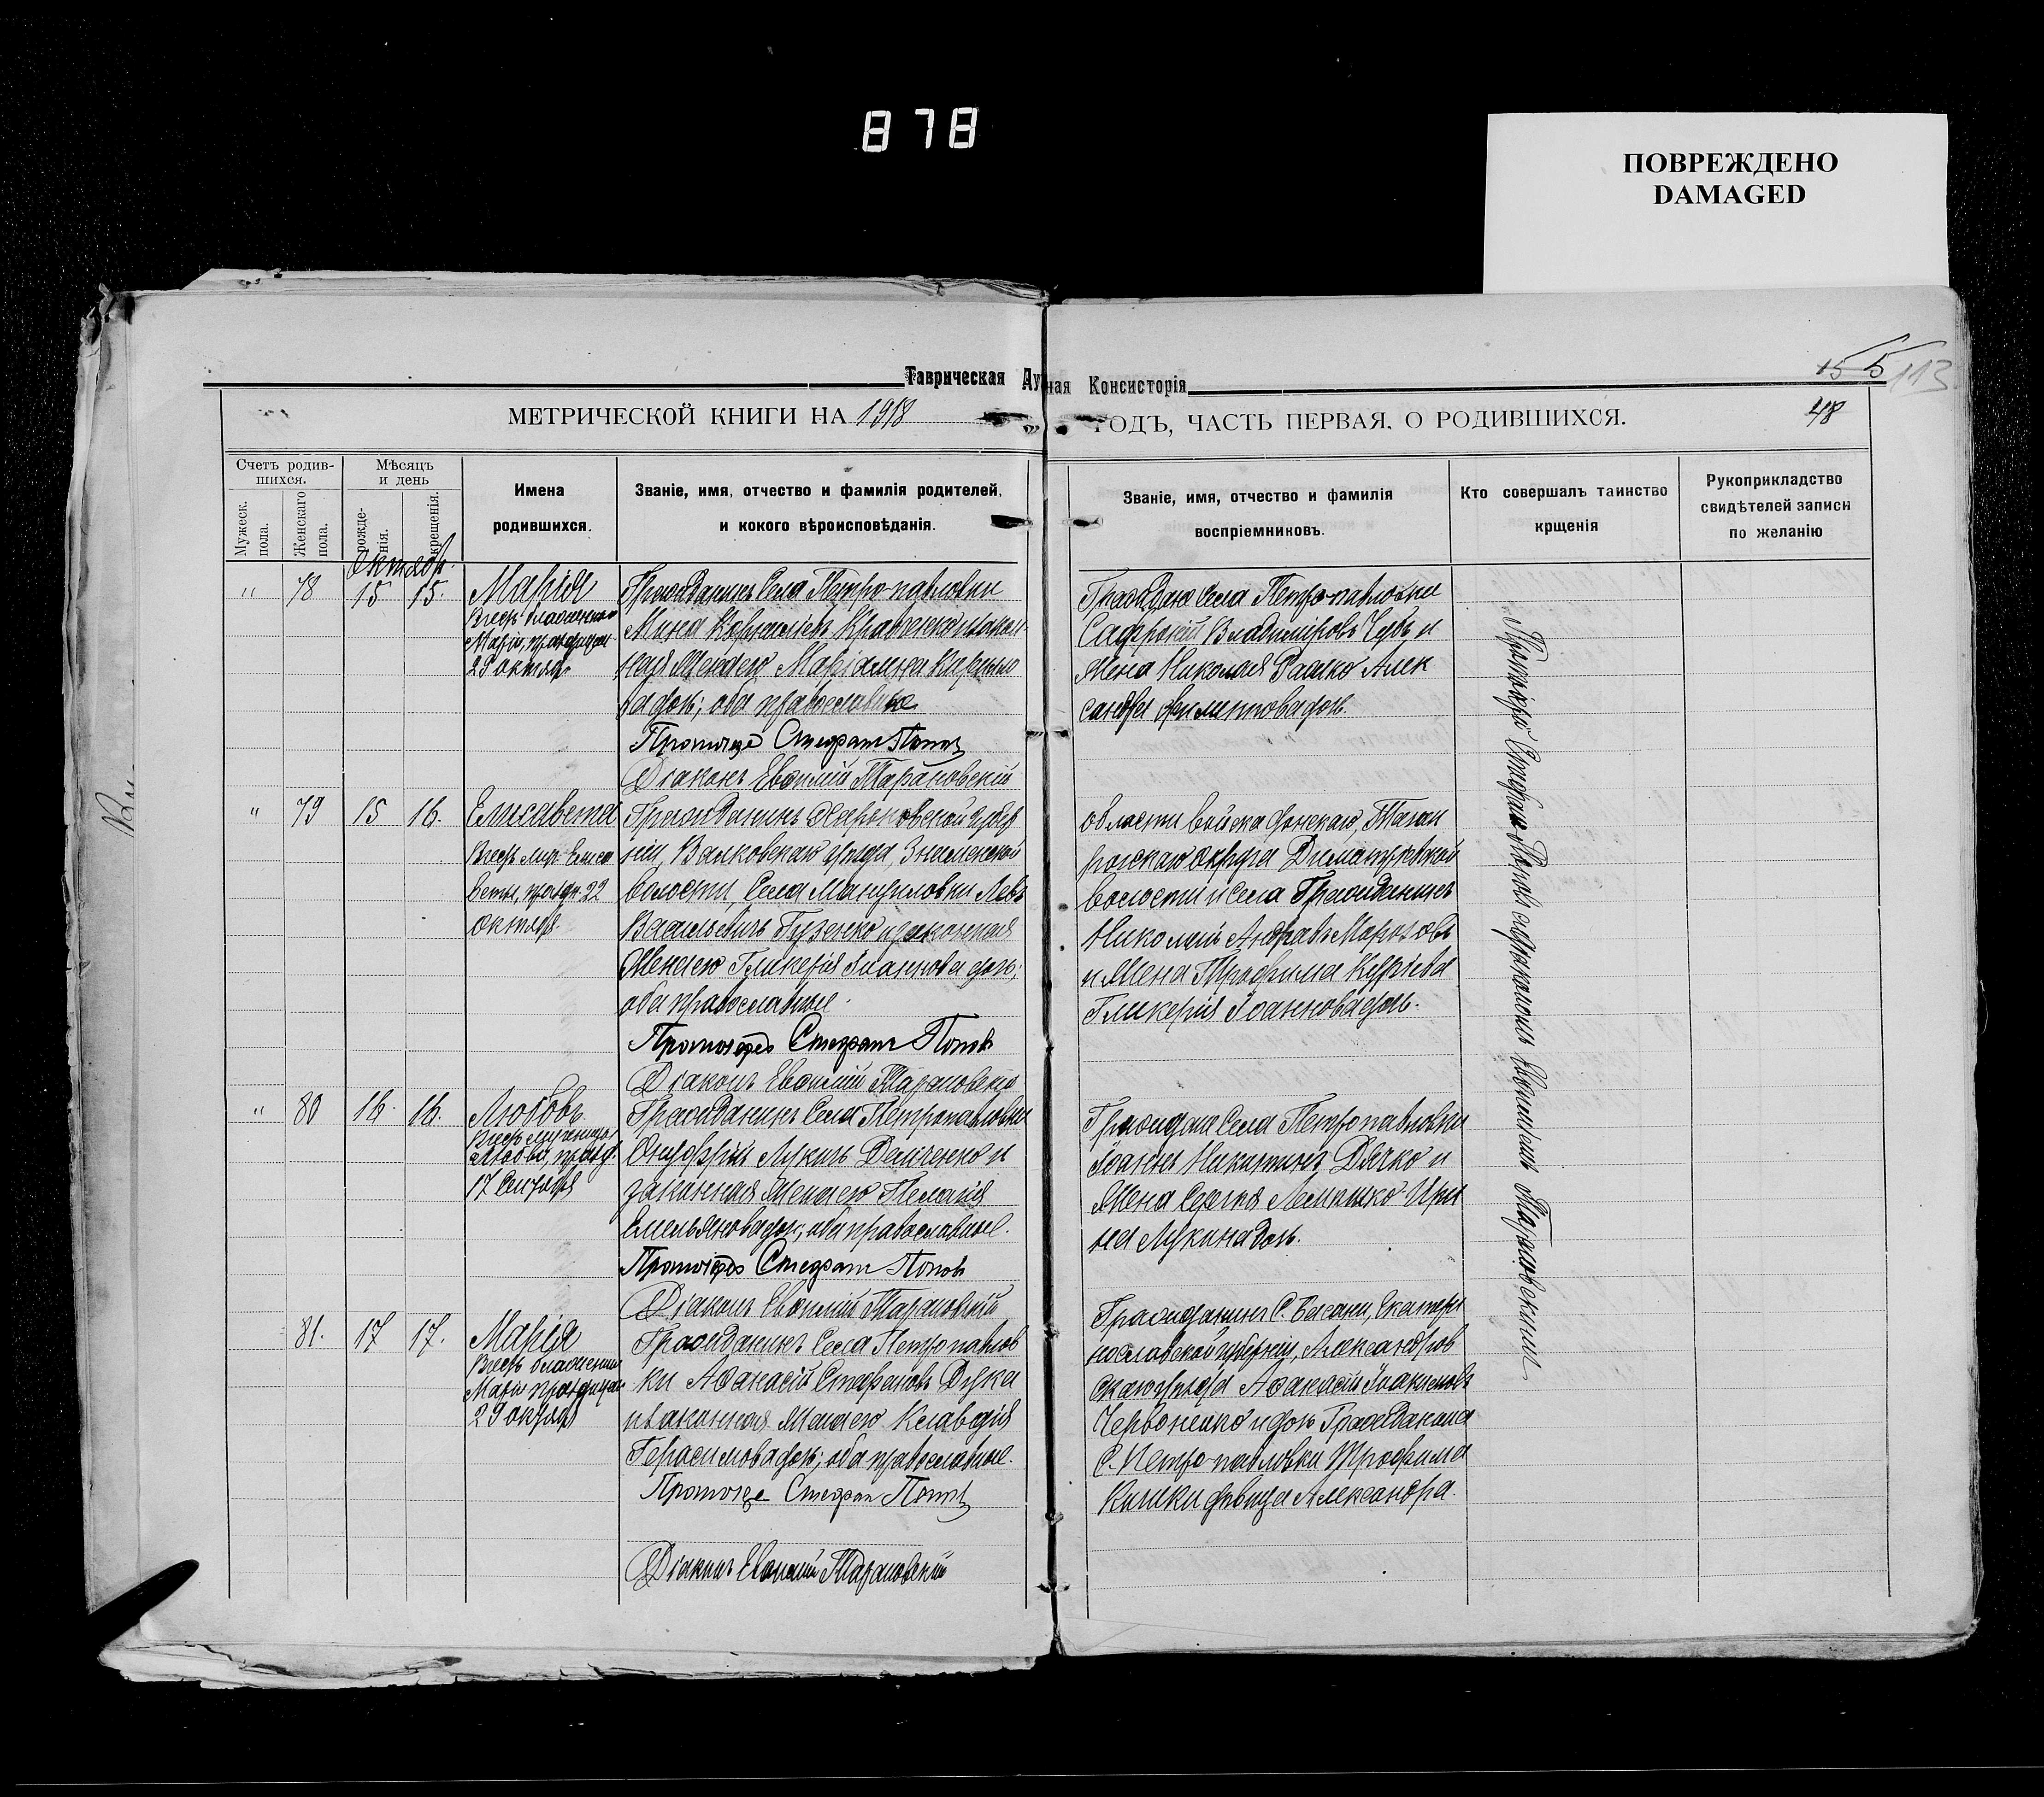 878
ПОВРЕЖДЕНО
DAMAGED
155
113
Таврическая Ду ная Консисторія
МЕТРИЧЕСКОЙ КНИГИ НА 1918 ГОДЪ, ЧАСТЬ ПЕРВАЯ, О РОДИВШИХСЯ.
48
Счетъ родив-
шихся.
Мужеск.
пола.
Женскаго
пола.
Мѣсяцъ
и день
рожде-
нія.
крещенія.
Имена
родившихся.
Званіе, имя, отчество и фамилія родителей,
и кокого вѣроисповѣданія.
Званіе, имя, отчество и фамилія
воспріемниковъ.
Кто совершалъ таинство
крщенія
Рукоприкладство
свидѣтелей записи
по желанію
Октябр.
" 78 15 15. Марія
Въ честь блаженной
Маріи, празднуем
29 октября
Гражданинъ села Петропавловки
Мина Корниліевъ Кравченко и закон
ная жена его Марія
дочь; оба православные
Протоіерей Стефанъ Поповъ
Діаконъ Евѳимій Тарановскій
Граждане села Петропавловки
Софроній Владиміровъ Чубъ и
жена Николая Рашко Алек
сандра Филиппова дочь.
" 79 15 16. Елисавета
Въ честь муч. Елиса
веты, праздн. 22
октября
Гражданинъ Харьковской губер
ніи, Валковскаго уѣзда, Знаменской
волости, села Мануиловки Левъ
Васильевичъ Гузенко и законная
жена его Гликерія Іоаннова дочь;
оба православные.
Протоіерей Стефанъ Поповъ
Діаконъ Евѳимій Тарановскій
области войска донскаго, Таган
рогскаго округа Димитріевской
волости и села Гражданинъ
Николай Андреевъ Морозовъ
и жена Трофима
Гликерія Іоаннова дочь.
" 80 16. 16. Любовь
Въ честь мученицы
Любви, праздн.
17 Сентября
Гражданинъ села Петропавловки
Онуфрій Лукинъ Демченко и
законная жена его Пелагія
Емельянова дочь; оба православные.
Протоіерей Стефанъ Поповъ
Діаконъ Евѳимій Тарановскій
Граждане села Петропавловки
Іоаннъ Никитинъ Дьячко и
жена Сергѣя Лемешко Ири
на Лукина дочь.
81. 17 17. Марія
Въ честь блаженной
Маріи празднуем
29 октября
Гражданинъ села Петропавлов
ки Аѳанасій Стефановъ Дука
и законная жена его Клавдія
Герасимова дочь; оба православные.
Протоіерей Стефанъ Поповъ
Діаконъ Евѳимій Тарановскій
Гражданинъ с. Басани, Екатери
нославской губерніи, Александров
скаго уѣзда Аѳанасій Іоакимовъ
Червоненко и дочь Гражданина
с. Петропавловки Трофима
Кишки дѣвица Александра.
Протоіерей Стефанъ Поповъ съ діакономъ Евѳиміемъ Тарановскимъ